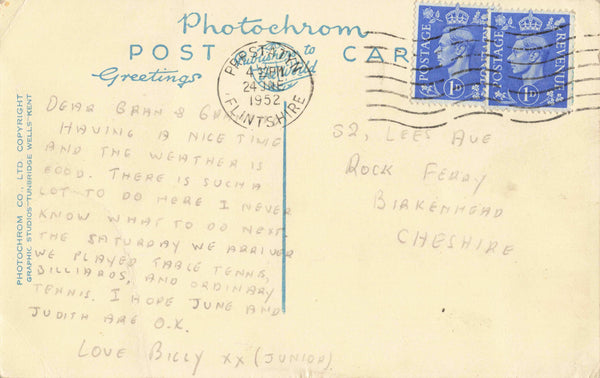 Photochrom
POST CARD
Greetings
Publishers to
the World
PRESTATYN
24
1952
FLINTSHIRE
POSTAGE REVENUE
1D
POSTAGE REVENUE
1D
PHOTOCHROM CO., LTD. COPYRIGHT
GRAPHIC STUDIOS-TUNBRIDGE WELLS-KENT
DEAR GRAN &
HAVING A NICE TIME
AND THE WEATHER IS
GOOD. THERE IS SUCH A
LOT TO DO HERE I NEVER
KNOW WHAT TO DO NEXT.
THE SATURDAY WE ARRIVED
WE PLAYED TABLE TENNIS,
BILLIARDS, AND ORDINARY
TENNIS. I HOPE JUNE AND
JUDITH ARE O.K.
LOVE BILLY XX (JUNIOR)
52, LEES AVE
ROCK FERRY
BIRKENHEAD
CHESHIRE.